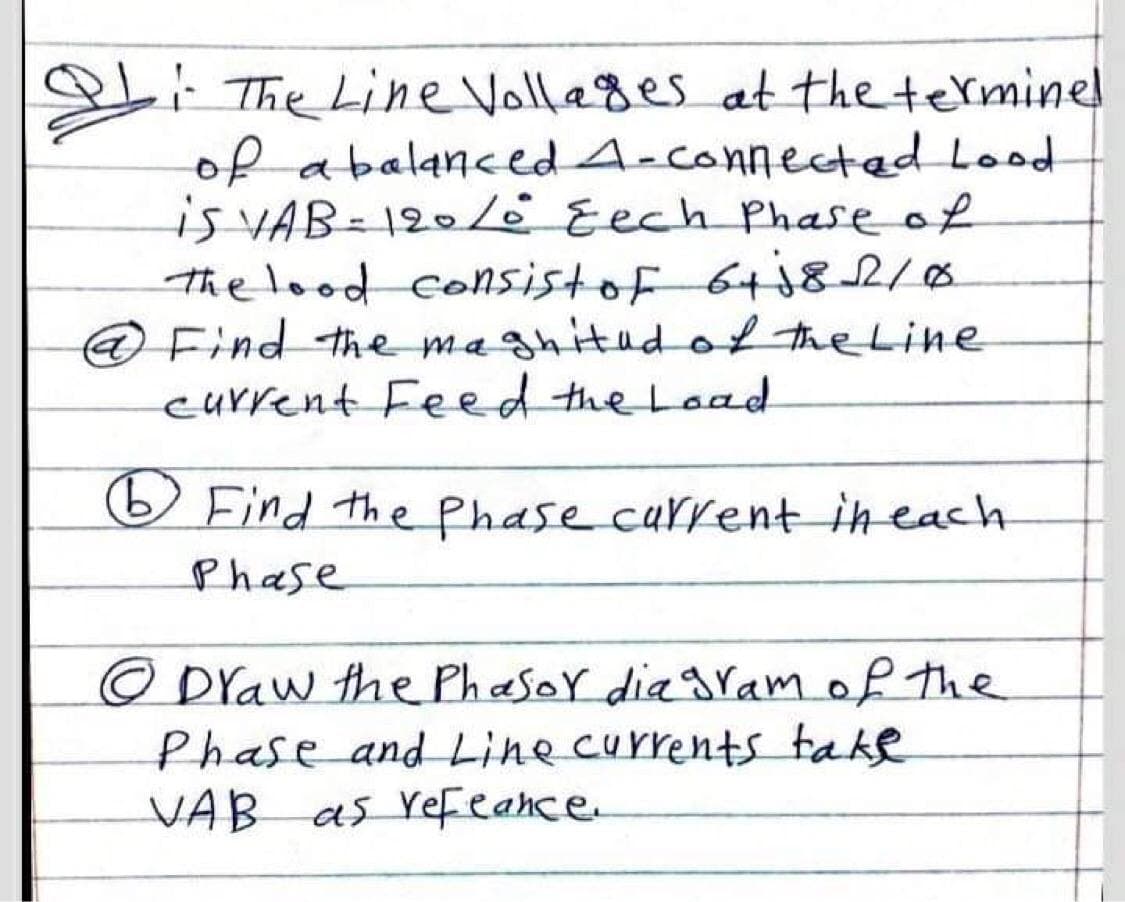 Q1:- The Line Voltages at the terminel
of a balanced Δ-connected Lood
is VAB = 120∠0° Eech Phase of
The lood consist of 6+j8 Ω/Ø
ⓐ Find the maghitud of the Line
current Feed the Load
ⓑ Find the Phase current in each
Phase
ⓒ Draw the Phasor diagram of the
Phase and Line currents take
VAB as refeance.